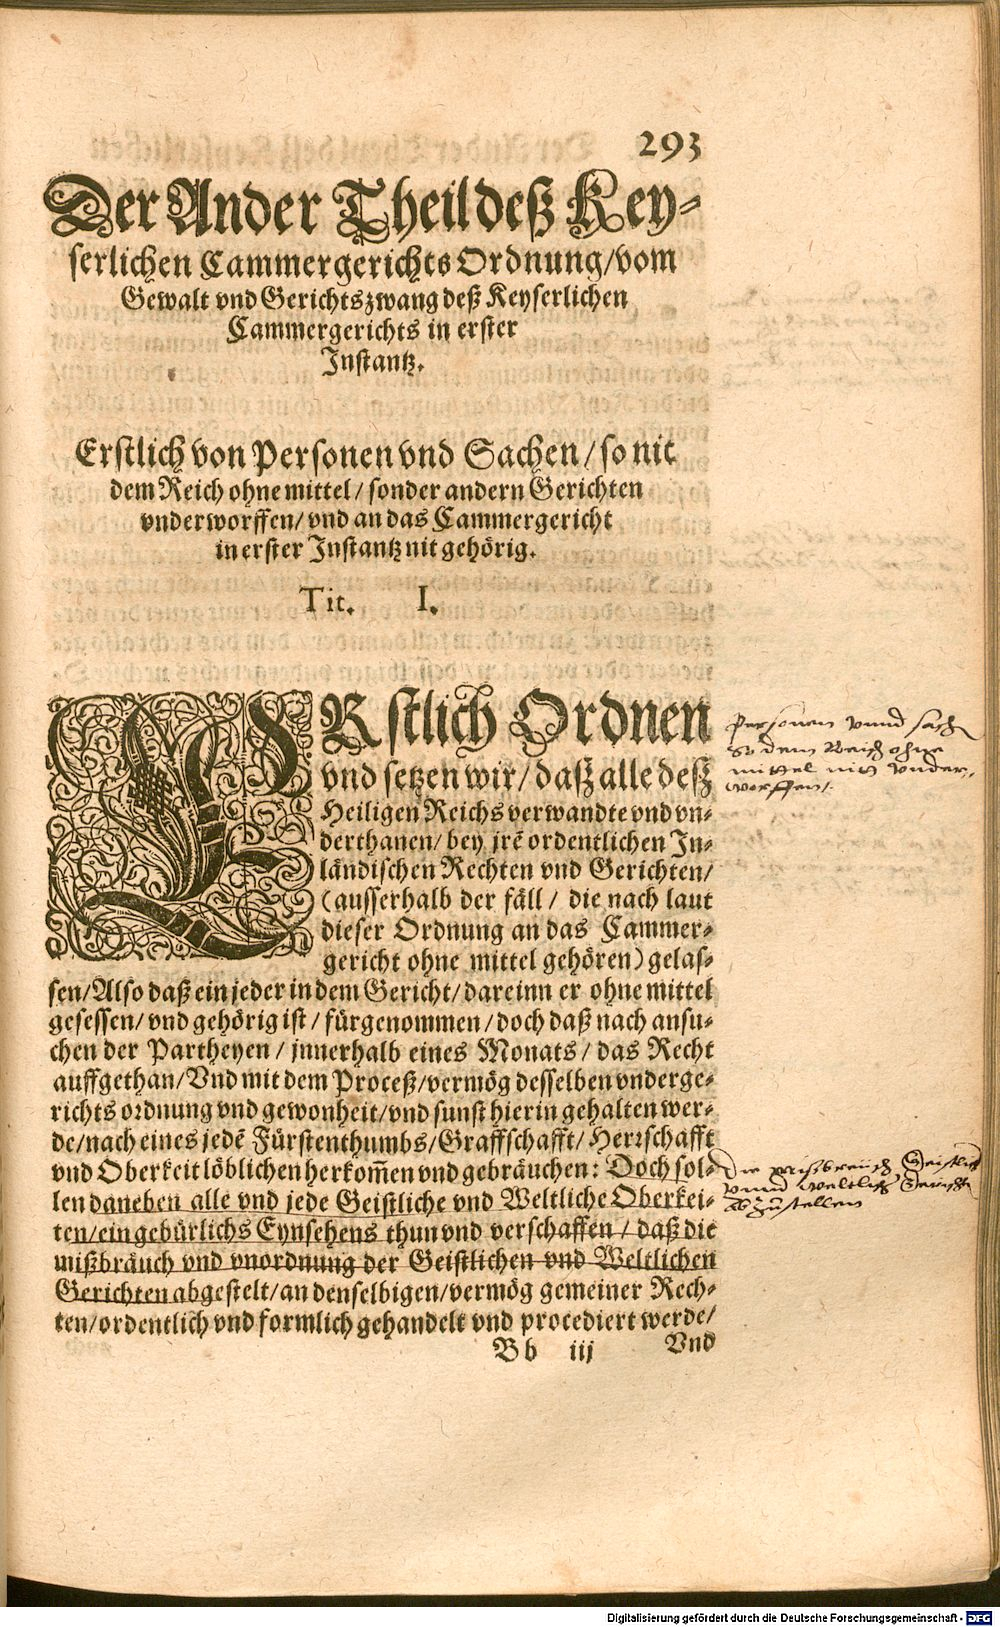 293
Der Ander Theil deß Key-
serlichen Cammergerichts Ordnung/vom
Gewalt vnd Gerichtszwang deß Keyserlichen
Cammergerichts in erster
Instantz.
Erstlich von Personen vnd Sachen/so nit
dem Reich ohne mittel/sonder andern Gerichten
vnderworffen/vnd an das Cammergericht
in erster Instantz nit gehörig.
Tit. I.
ERstlich Ordnen
vnd setzen wir/daß alle deß
Heiligen Reichs verwandte vnd vn-
derthanen/bey jrē ordentlichen In-
ländischen Rechten vnd Gerichten/
(ausserhalb der fäll/ die nach laut
dieser Ordnung an das Cammer-
gericht ohne mittel gehören) gelas-
sen/Also daß ein jeder in dem Gericht/dareinn er ohne mittel
gesessen/vnd gehörig ist/fürgenommen/doch daß nach ansu-
chen der Partheyen/jnnerhalb eines Monats/das Recht
auffgethan/Vnd mit dem Proceß/vermög desselben vnderge-
richts ordnung vnd gewonheit/vnd sunst hierin gehalten wer-
de/nach eines jedē Fürstenthumbs/Graffschafft/Herrschafft
vnd Oberkeit löblichen herkom̄en vnd gebräuchen: Doch sol-
len daneben alle vnd jede Geistliche vnd Weltliche Oberkei-
ten/ein gebürlichs Eynsehens thun vnd verschaffen/daß die
mißbräuch vnd vnordnung der Geistlichen vnd Weltlichen
Gerichten abgestelt/an denselbigen/vermög gemeiner Rech-
ten/ordentlich vnd formlich gehandelt vnd procediert werde/
Bb iij Vnd
Personen vnnd sachen
So dem Reich ohne
mittel nitt vnder-
worffen/.
Die mißbreuch Geistlich
vnnd Weltlich Gericht
abzustellen
Digitalisierung gefördert durch die Deutsche Forschungsgemeinschaft - DFG